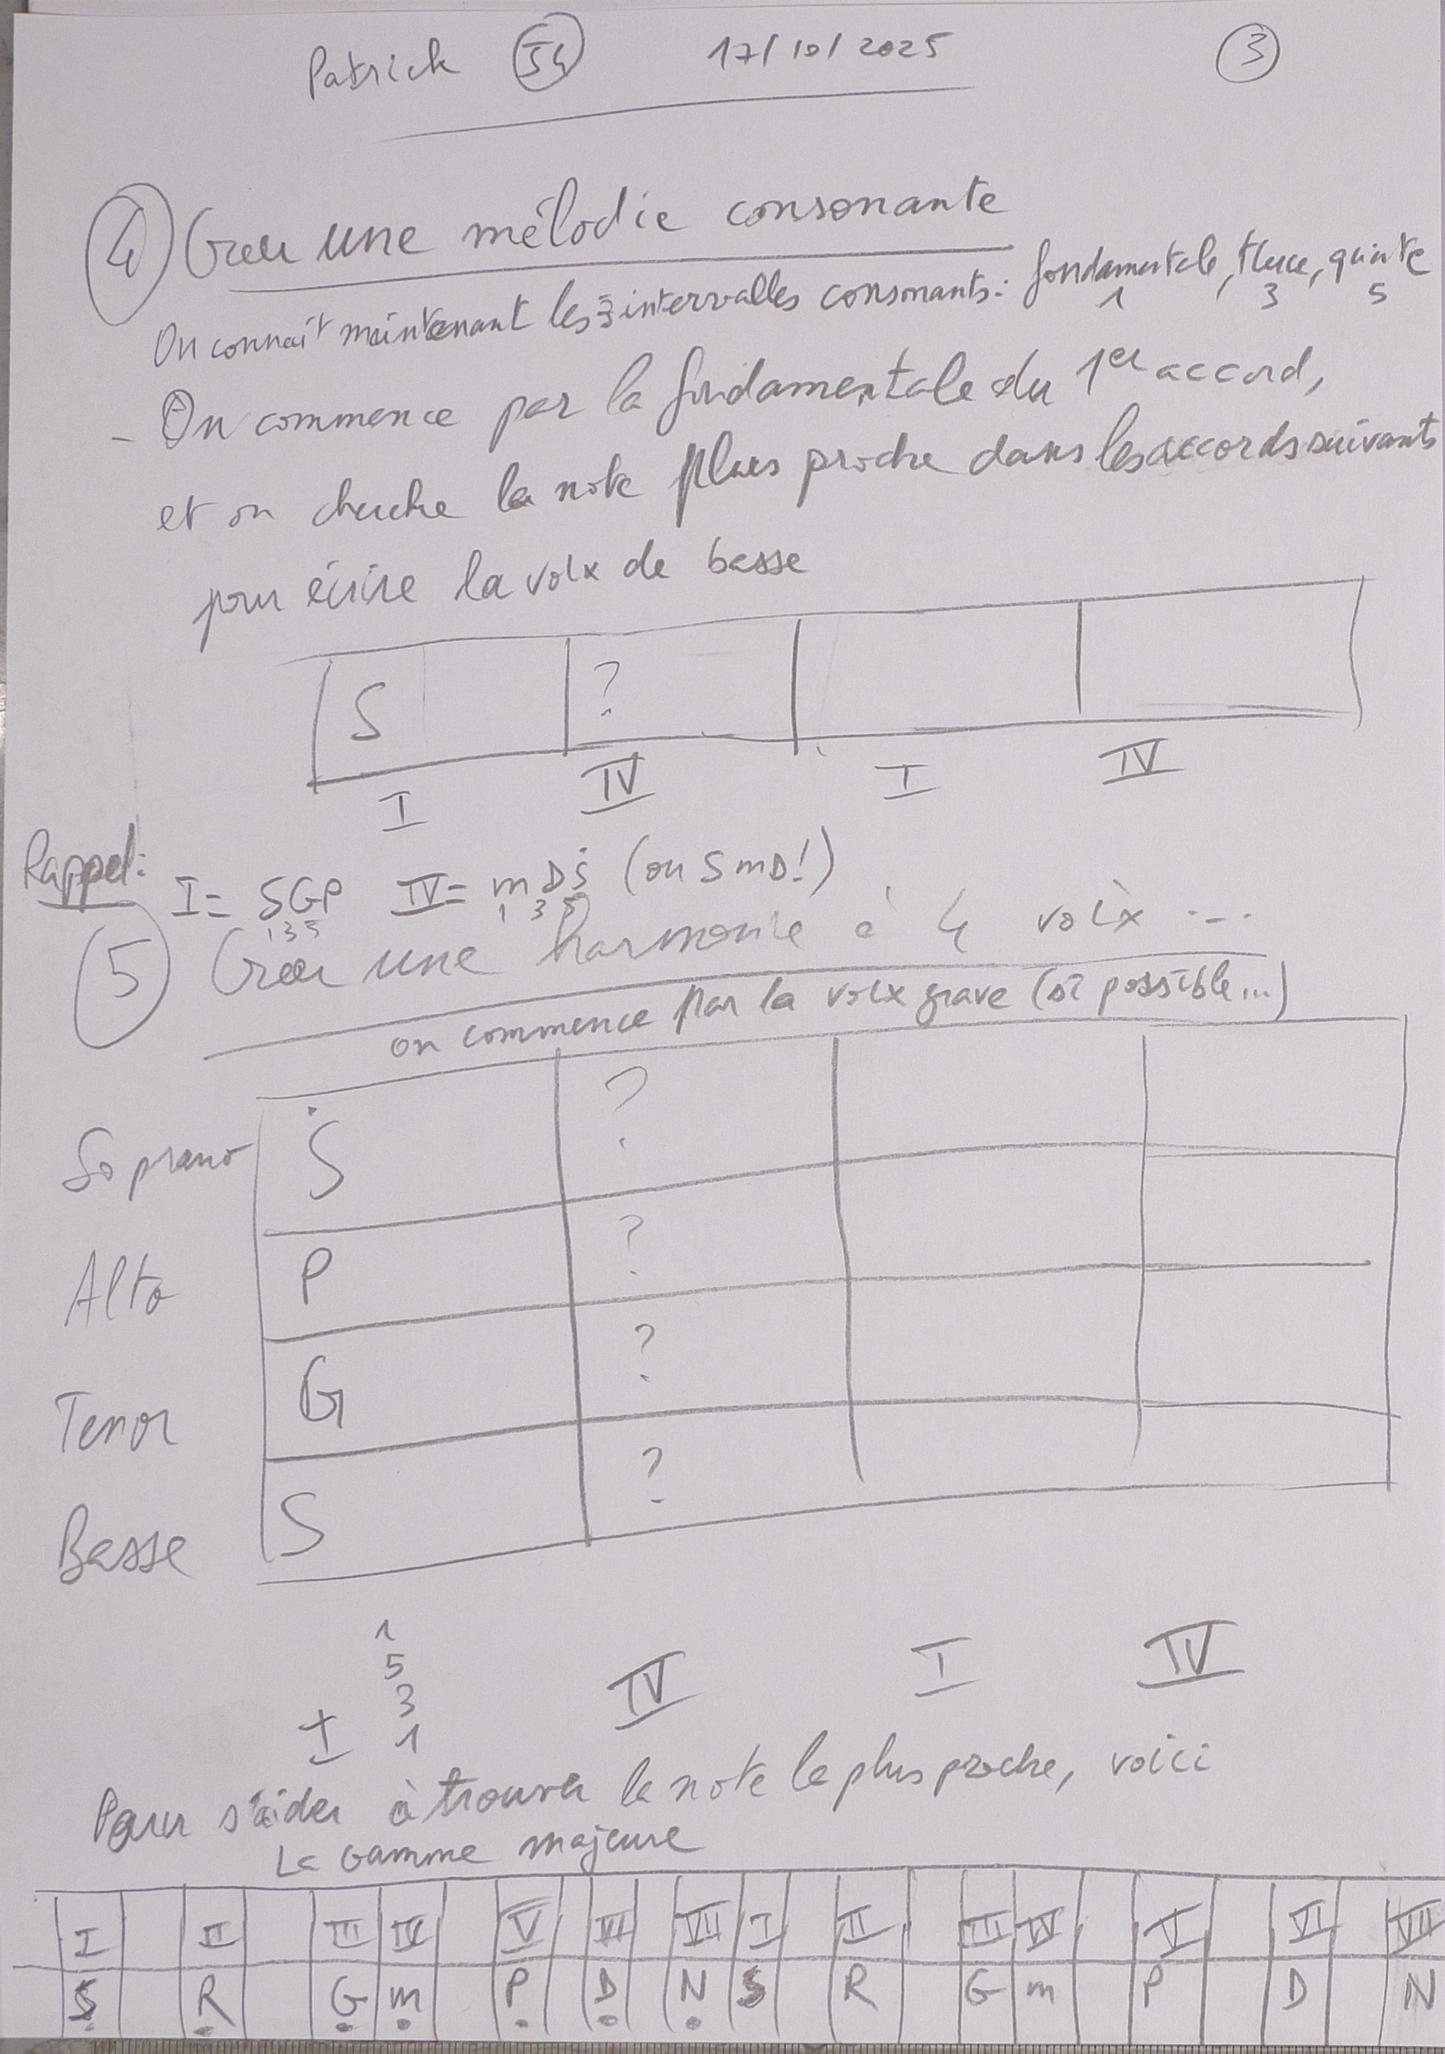 Patrick 54 17/10/2025 3
4 Créer une mélodie consonante
On connaît maintenant les 3 intervalles consonants: fondamentale, tierce, quinte
1 3 5
- On commence par la fondamentale du 1er accord,
et on cherche la note plus proche dans les accords suivants
pour écrire la voix de basse
S ?
I IV I IV
Rappel: I = SGP IV = mDṠ (ou SmD!)
135 1 3 5
5 Créer une harmonie à 4 voix ...
on commence par la voix grave (si possible...)
Soprano Ṡ ?
Alto P ?
Tenor G ?
Basse S ?
1
5
3
I 1 IV I IV
Pour s'aider à trouver la note la plus proche, voici
La Gamme majeure
I II III IV V VI VII I II III IV V VI VII
Ṣ Ṛ G̣ ṃ P̣ Ḍ Ṇ S R G m P D N